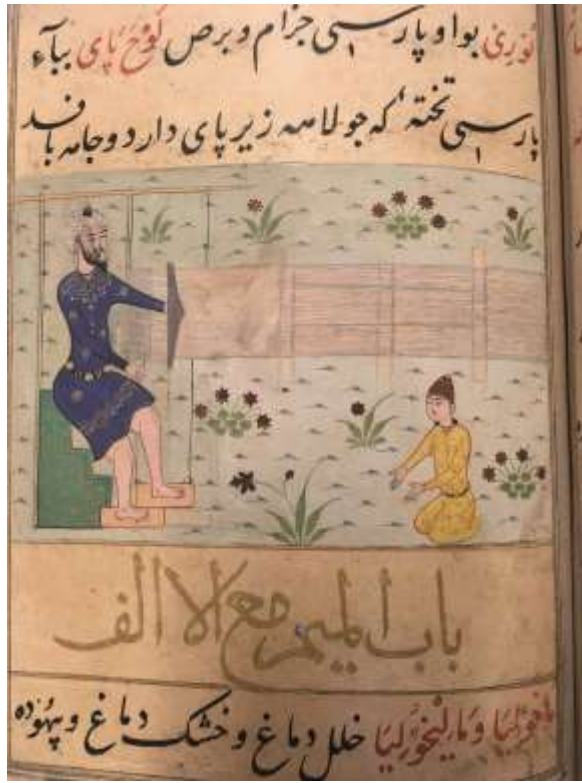 لوری بواو پارسی جزام و برص لوح پای بباء
پارسی تخته که جولاهه زیر پای دارد و جامه بافد
باب المیم مع الالف
ماخولیا و مالیخولیا خلل دماغ و خشک دماغ و بیهوده